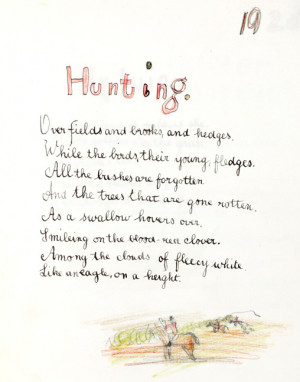 19
Hunting.
Over fields and brooks, and hedges.
While the birds, their young, fledges.
All the bushes are forgotten.
And the trees that are gone rotten.
As a swallow hovers over.
Smileing on the blood-red clover.
Among the clouds of fleecy white
Like an eagle, on a height.